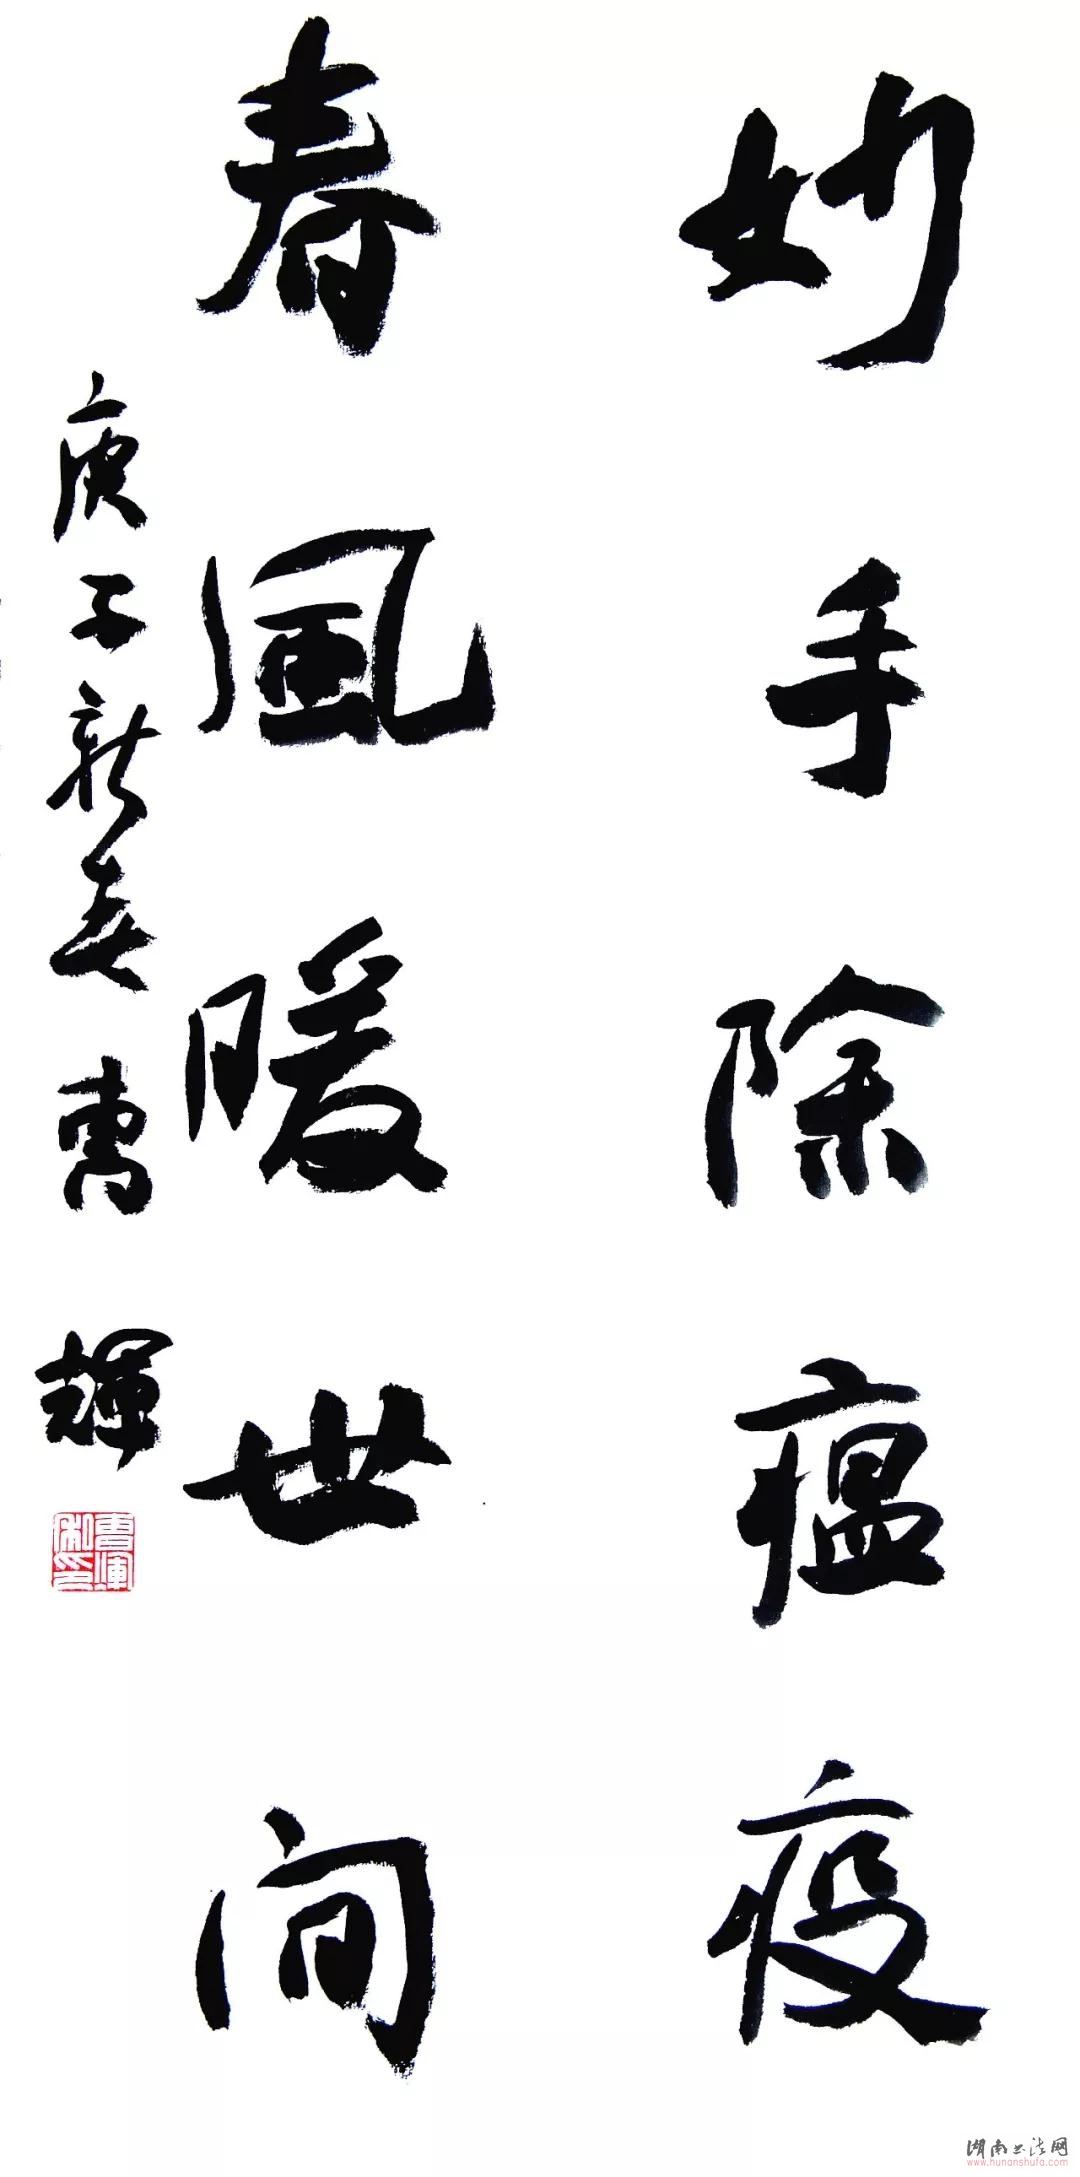 妙手除瘟疫
春風暖世间
庚子新春 曹輝
湖南书法网
www.hunanshufa.com